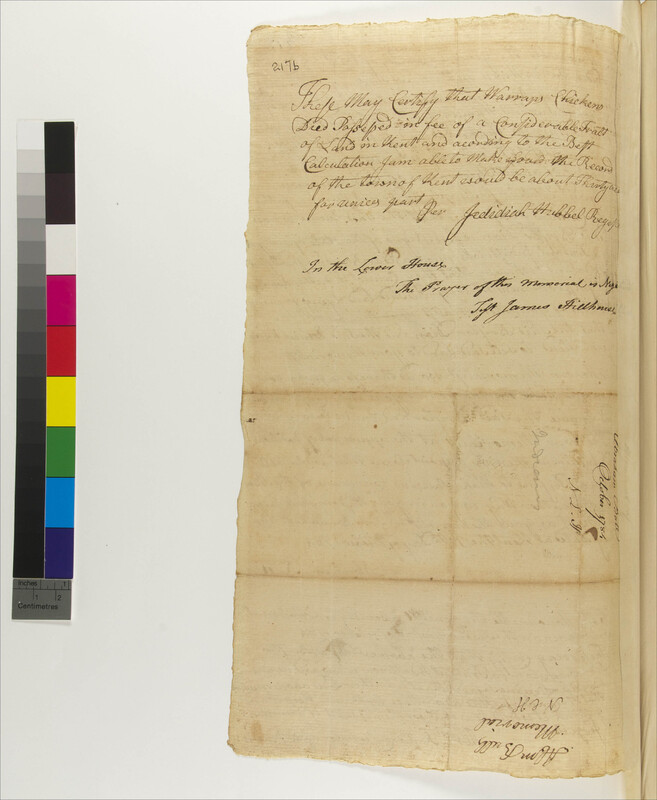 217b
These May Certify that Warrups Chickens
Died Possessed in fee of a Considerable Tract
of Land in Kent and acording to the Best
Calculation I am able to Make would the Record
of the town of Kent would be about Thirty
for unices part
Per Jedidiah Hubbel Regs
In the Lower House
The Prayer of this Memorial is Neg
Test James Hillhouse
Indians
October 1785
Memorial